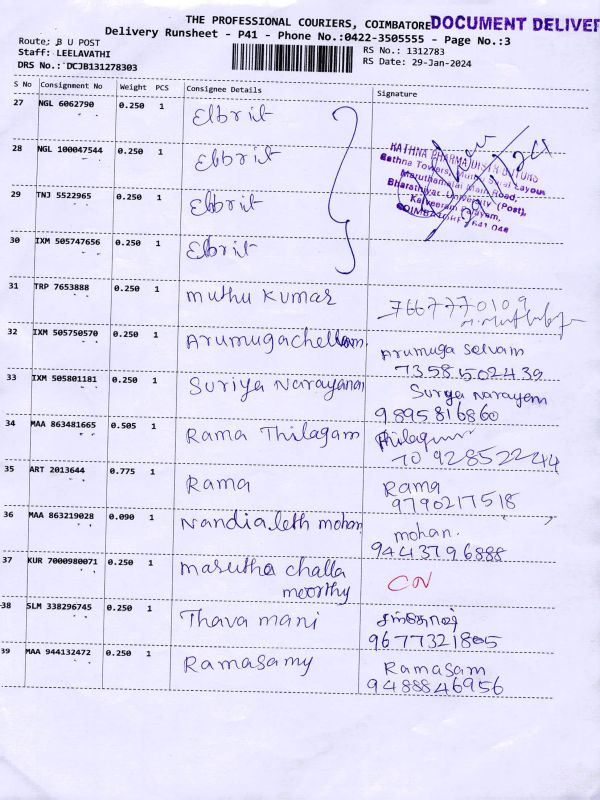 THE PROFESSIONAL COURIERS, COIMBATORE DOCUMENT DELIVER
Delivery Runsheet - P41 - Phone No.:0422-3505555 - Page No.:3
Route: B U POST
Staff: LEELAVATHI
DRS No.: DCJB131278303
RS No.: 1312783
RS Date: 29-Jan-2024
S No Consignment No Weight PCS Consignee Details Signature
27 NGL 6062790 0.250 1 Elbrit
28 NGL 100047544 0.250 1 Elbrit
29 TNJ 5522965 0.250 1 Elbrit
30 IXM 505747656 0.250 1 Elbrit
RATHNA PHARMA DISTRIBUTORS
Rathna Towers,
Maruthamalai Main Road,
Bharathiyar University (Post),
Kalveeram Palayam,
COIMBATORE - 641 046
31 TRP 7653888 0.250 1 muthu kumar 7667770109
32 IXM 505750570 0.250 1 Arumugachellam Arumuga Selvam
7358502439
33 IXM 505801181 0.250 1 Suriya Narayanan Surya Narayan
9895816860
34 MAA 863481665 0.505 1 Rama Thilagam Thilagam
7092852244
35 ART 2013644 0.775 1 Rama Rama
9790217518
36 MAA 863219028 0.090 1 Nandialeth mohan mohan.
9443796888
37 KUR 7000980071 0.250 1 Marutha challa
moorthy
38 SLM 338296745 0.250 1 Thava mani சந்தோஷ்
9677321805
39 MAA 944132472 0.250 1 Ramasamy Ramasam
9488846956